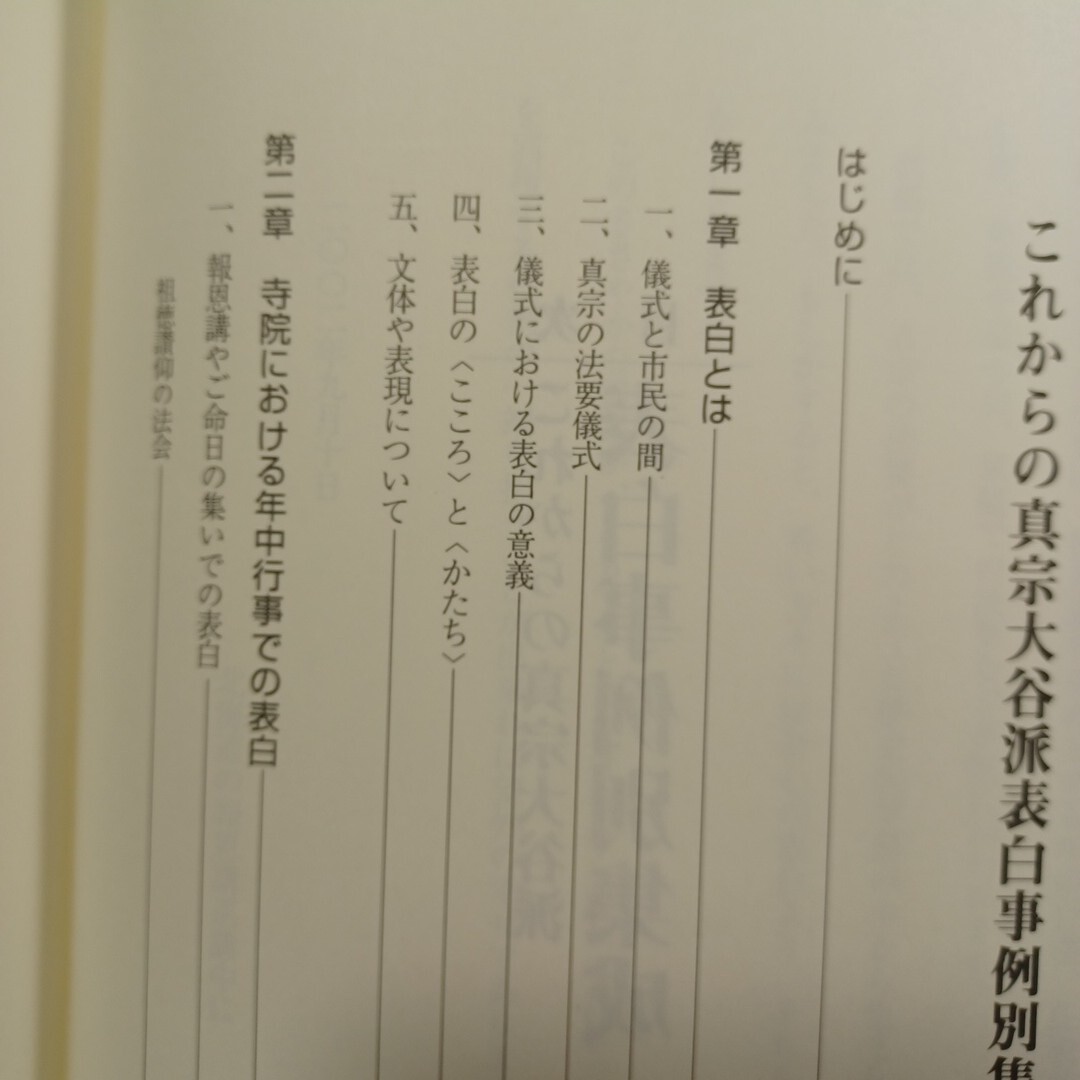 これからの真宗大谷派表白事例別集
はじめに
第一章 表白とは
一、儀式と市民の間
二、真宗の法要儀式
三、儀式における表白の意義
四、表白の〈こころ〉と〈かたち〉
五、文体や表現について
第二章 寺院における年中行事での表白
一、報恩講やご命日の集いでの表白
祖徳讃仰の法会